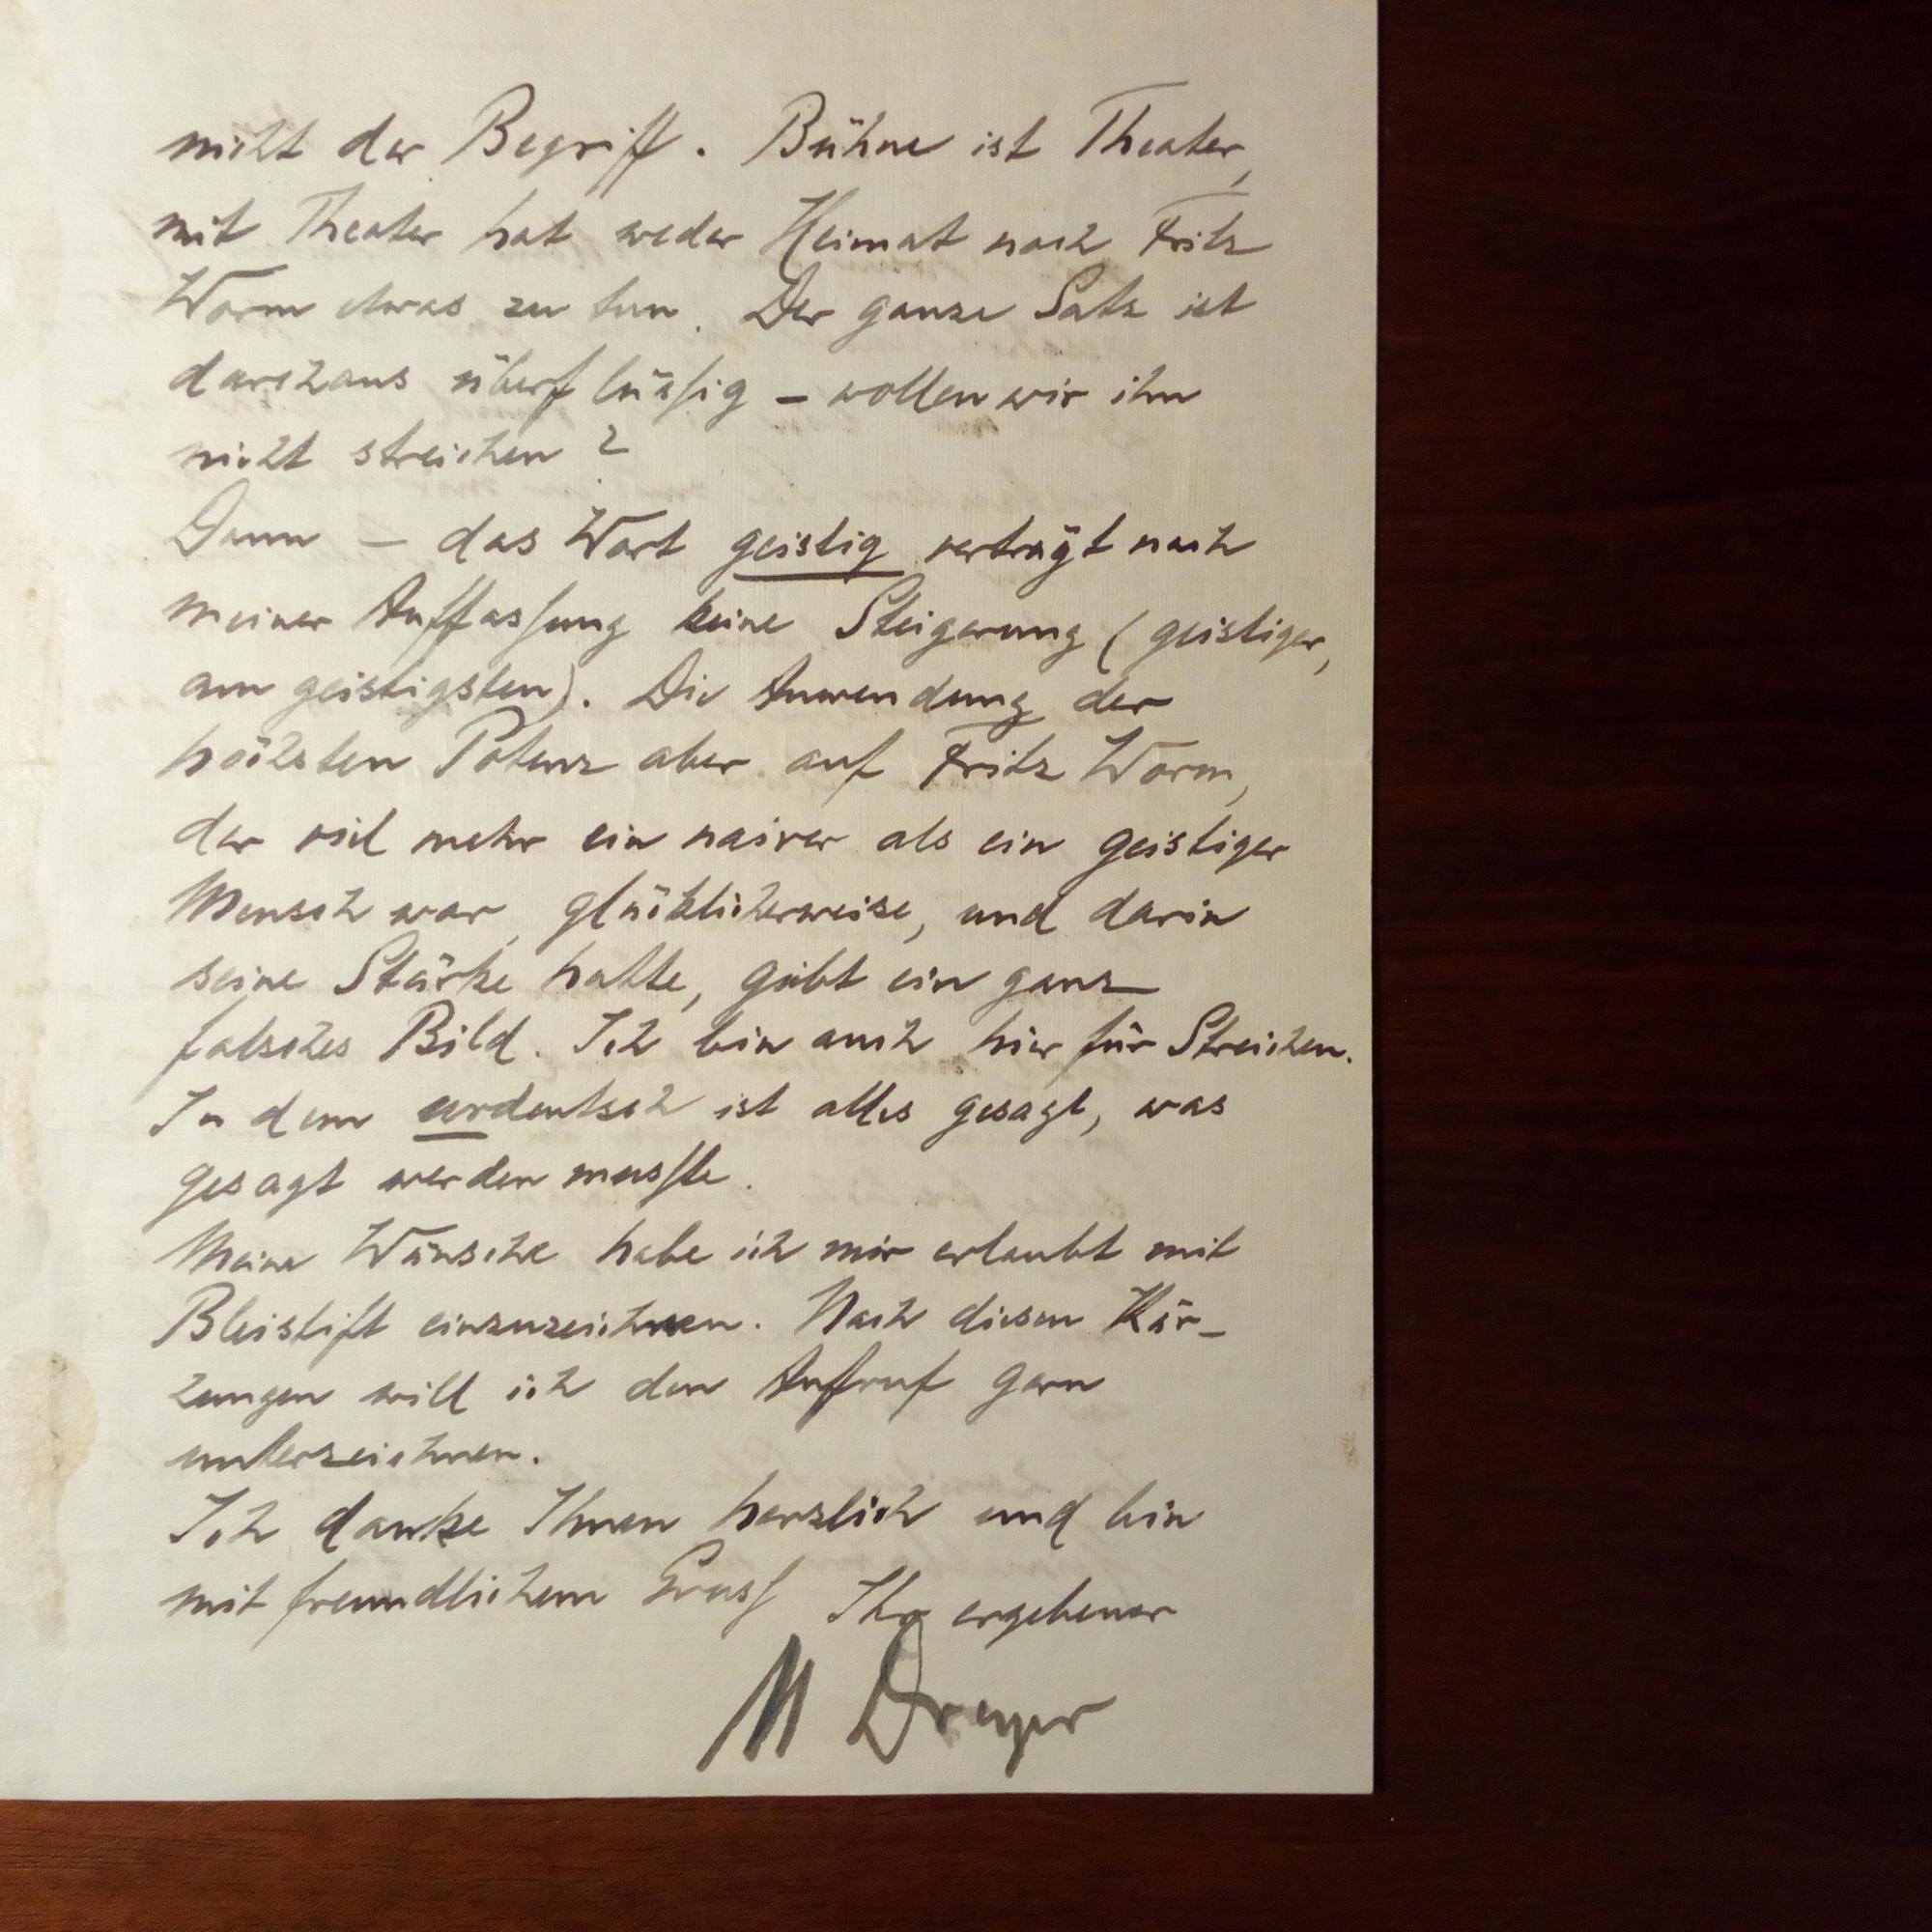 nicht der Begriff. Bühne ist Theater,
mit Theater hat weder Heimat noch Fritz
Worm etwas zu tun. Der ganze Satz ist
durchaus überflüssig – wollen wir ihn
nicht streichen?
Dann – das Wort geistig verträgt nach
meiner Auffassung keine Steigerung (geistiger,
am geistigsten). Die Anwendung der
höchsten Potenz aber auf Fritz Worm,
der viel mehr ein naiver als ein geistiger
Mensch war, glücklicherweise, und darin
seine Stärke hatte, gibt ein ganz
falsches Bild. Ich bin auch hier für Streichen.
In dem urdeutsch ist alles gesagt, was
gesagt werden musste.
Meine Wünsche habe ich mir erlaubt mit
Bleistift einzuzeichnen. Nach diesen Kür-
zungen will ich den Aufruf gern
unterzeichnen.
Ich danke Ihnen herzlich und bin
mit freundlichem Gruss Ihr ergebener
M Dreyer